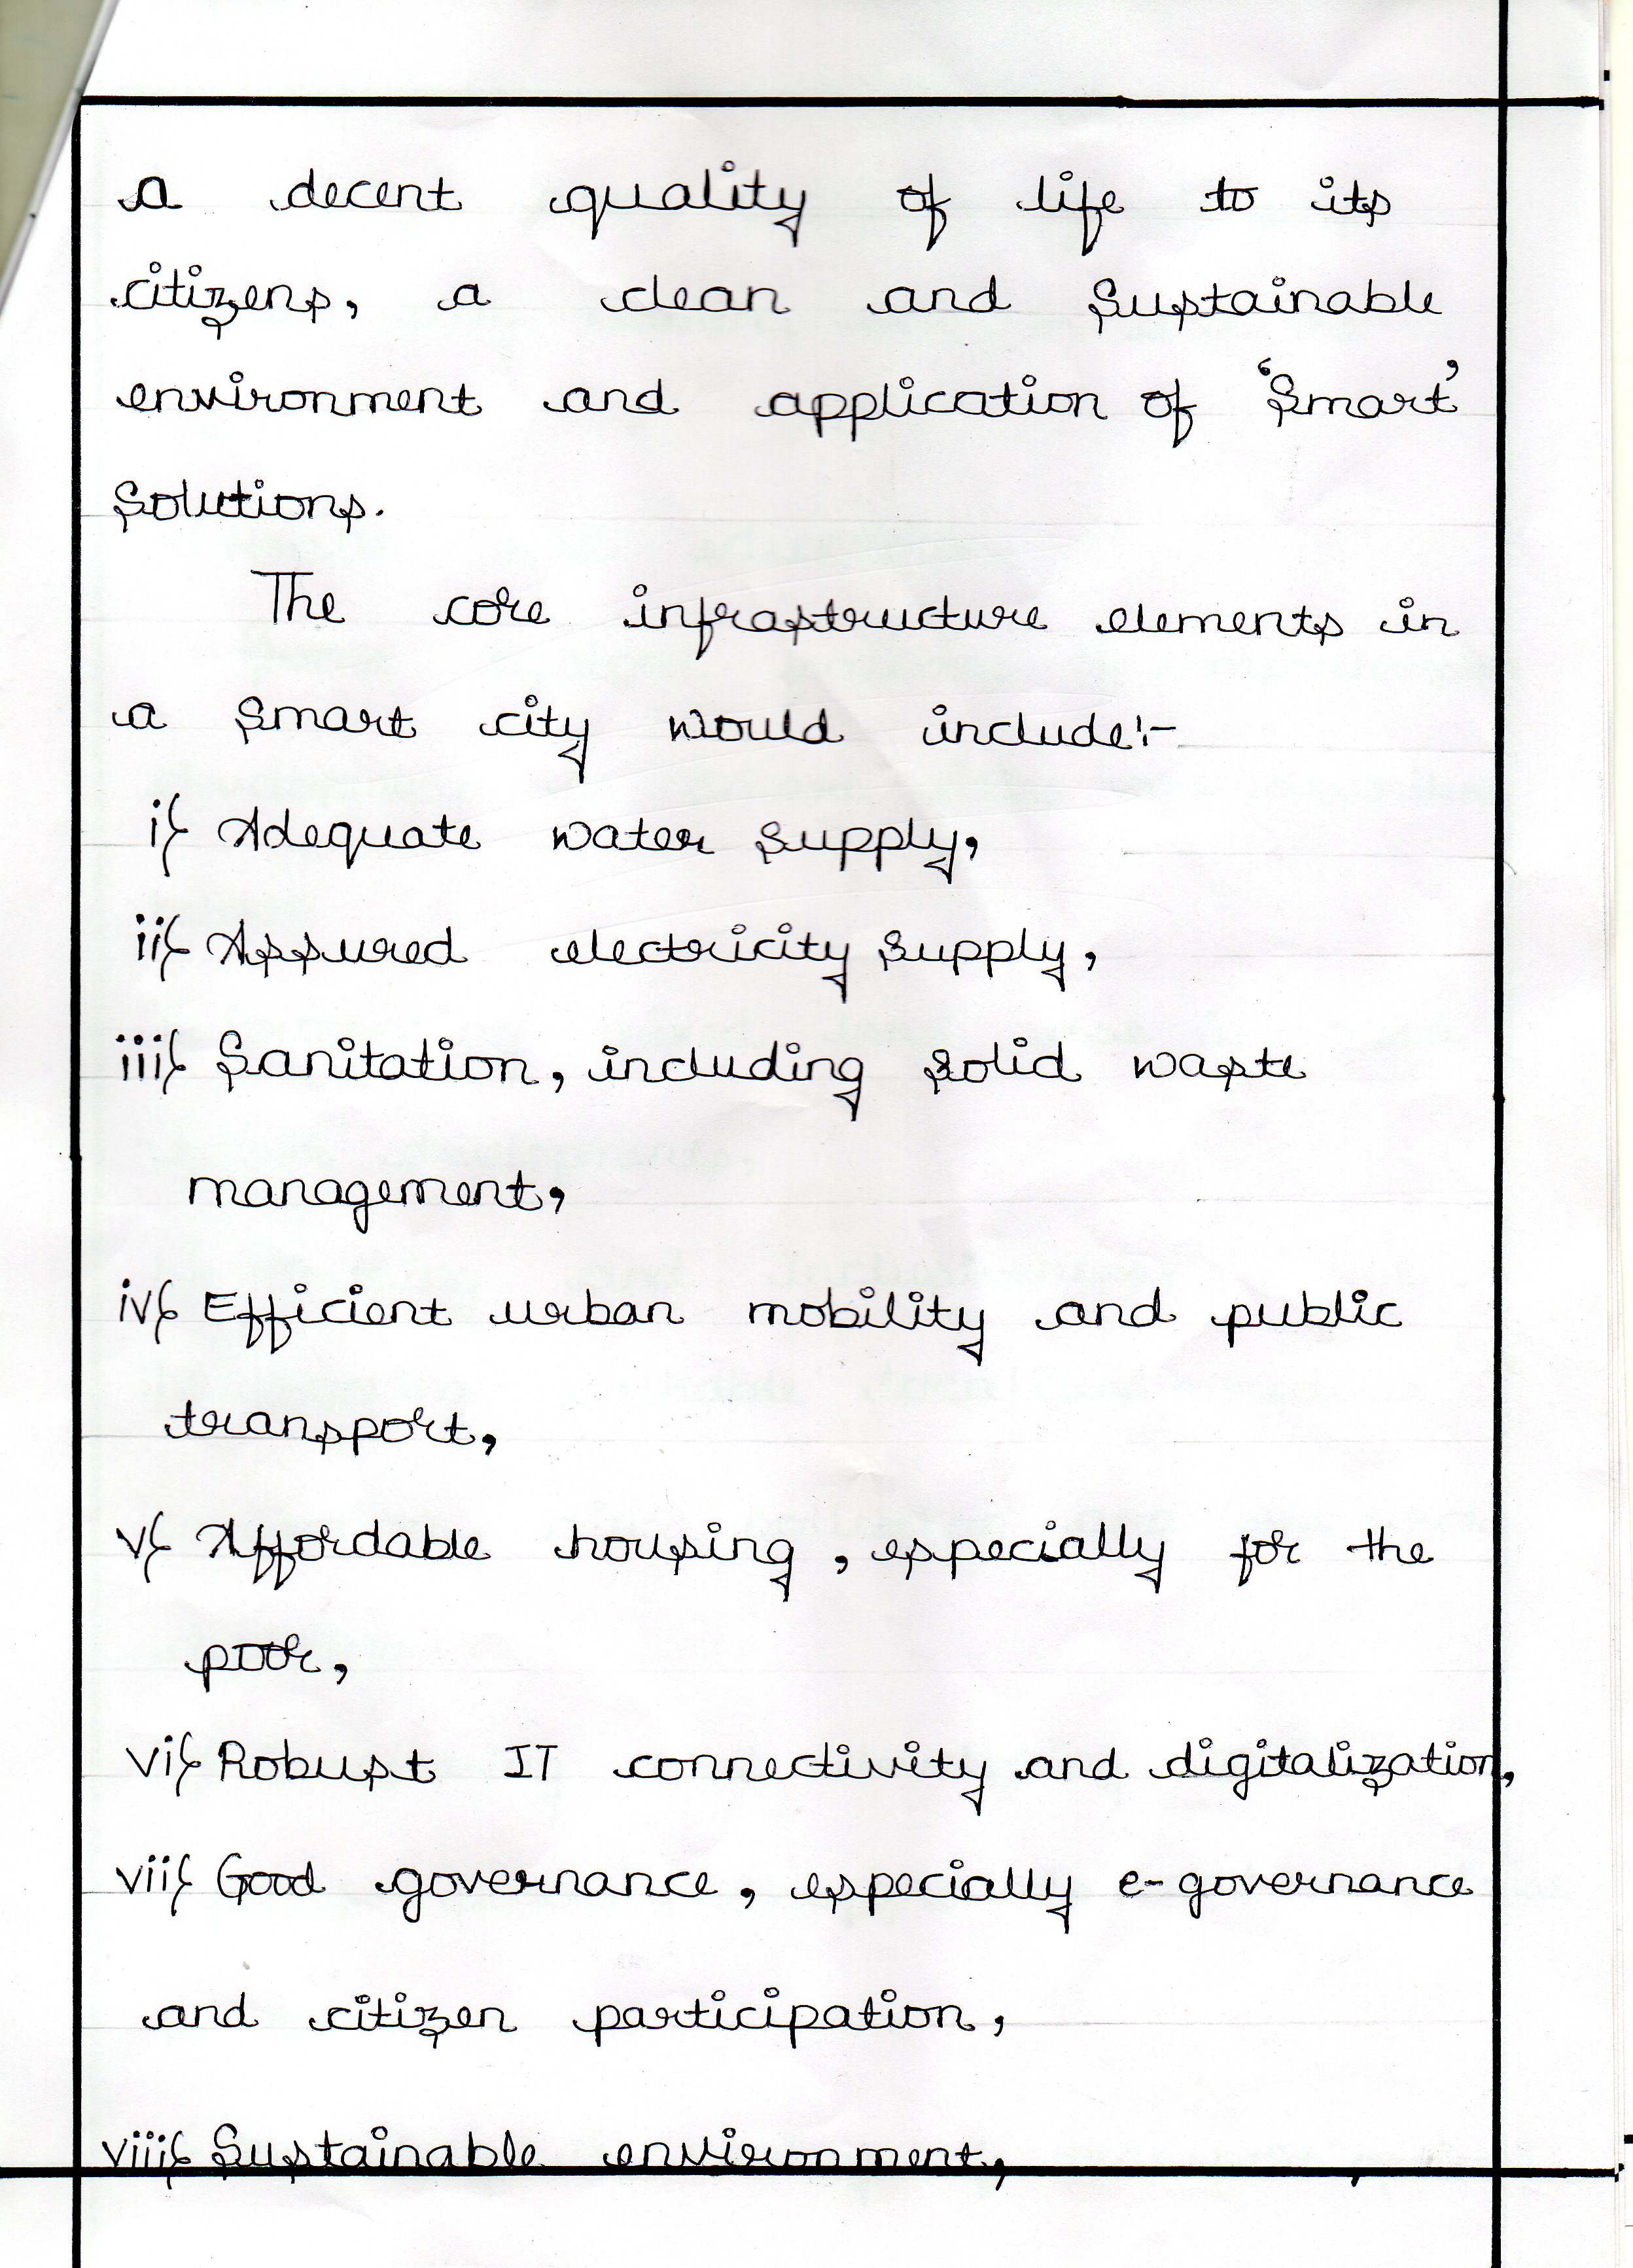 a decent quality of life to its
citizens, a clean and Sustainable
environment and application of 'Smart'
Solutions.
The core infrastructure elements in
a Smart city would include:-
i) Adequate water Supply,
ii) Assured electricity Supply,
iii) Sanitation, including Solid waste
management,
iv) Efficient urban mobility and public
transport,
v) Affordable housing, especially for the
poor,
vi) Robust IT connectivity and digitalization,
vii) Good governance, especially e-governance
and citizen participation,
viii) Sustainable environment,